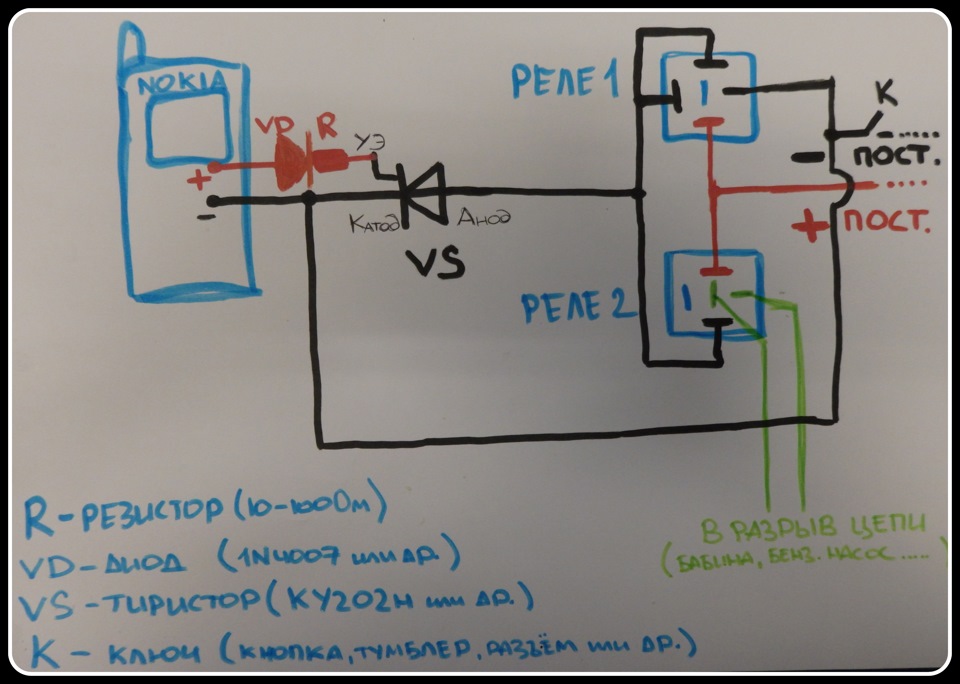 NOKIA
РЕЛЕ 1
VD R
УЭ
К
+
-
Катод Анод
VS
- ПОСТ.
+ ПОСТ.
РЕЛЕ 2
R - РЕЗИСТОР (10-100Ом)
VD - ДИОД (1N4007 или др.)
VS - ТИРИСТОР (КУ202Н или др.)
К - КЛЮЧ (КНОПКА, ТУМБЛЕР, РАЗЪЁМ или др.)
В РАЗРЫВ ЦЕПИ
(БАБИНА, БЕНЗ. НАСОС .....)